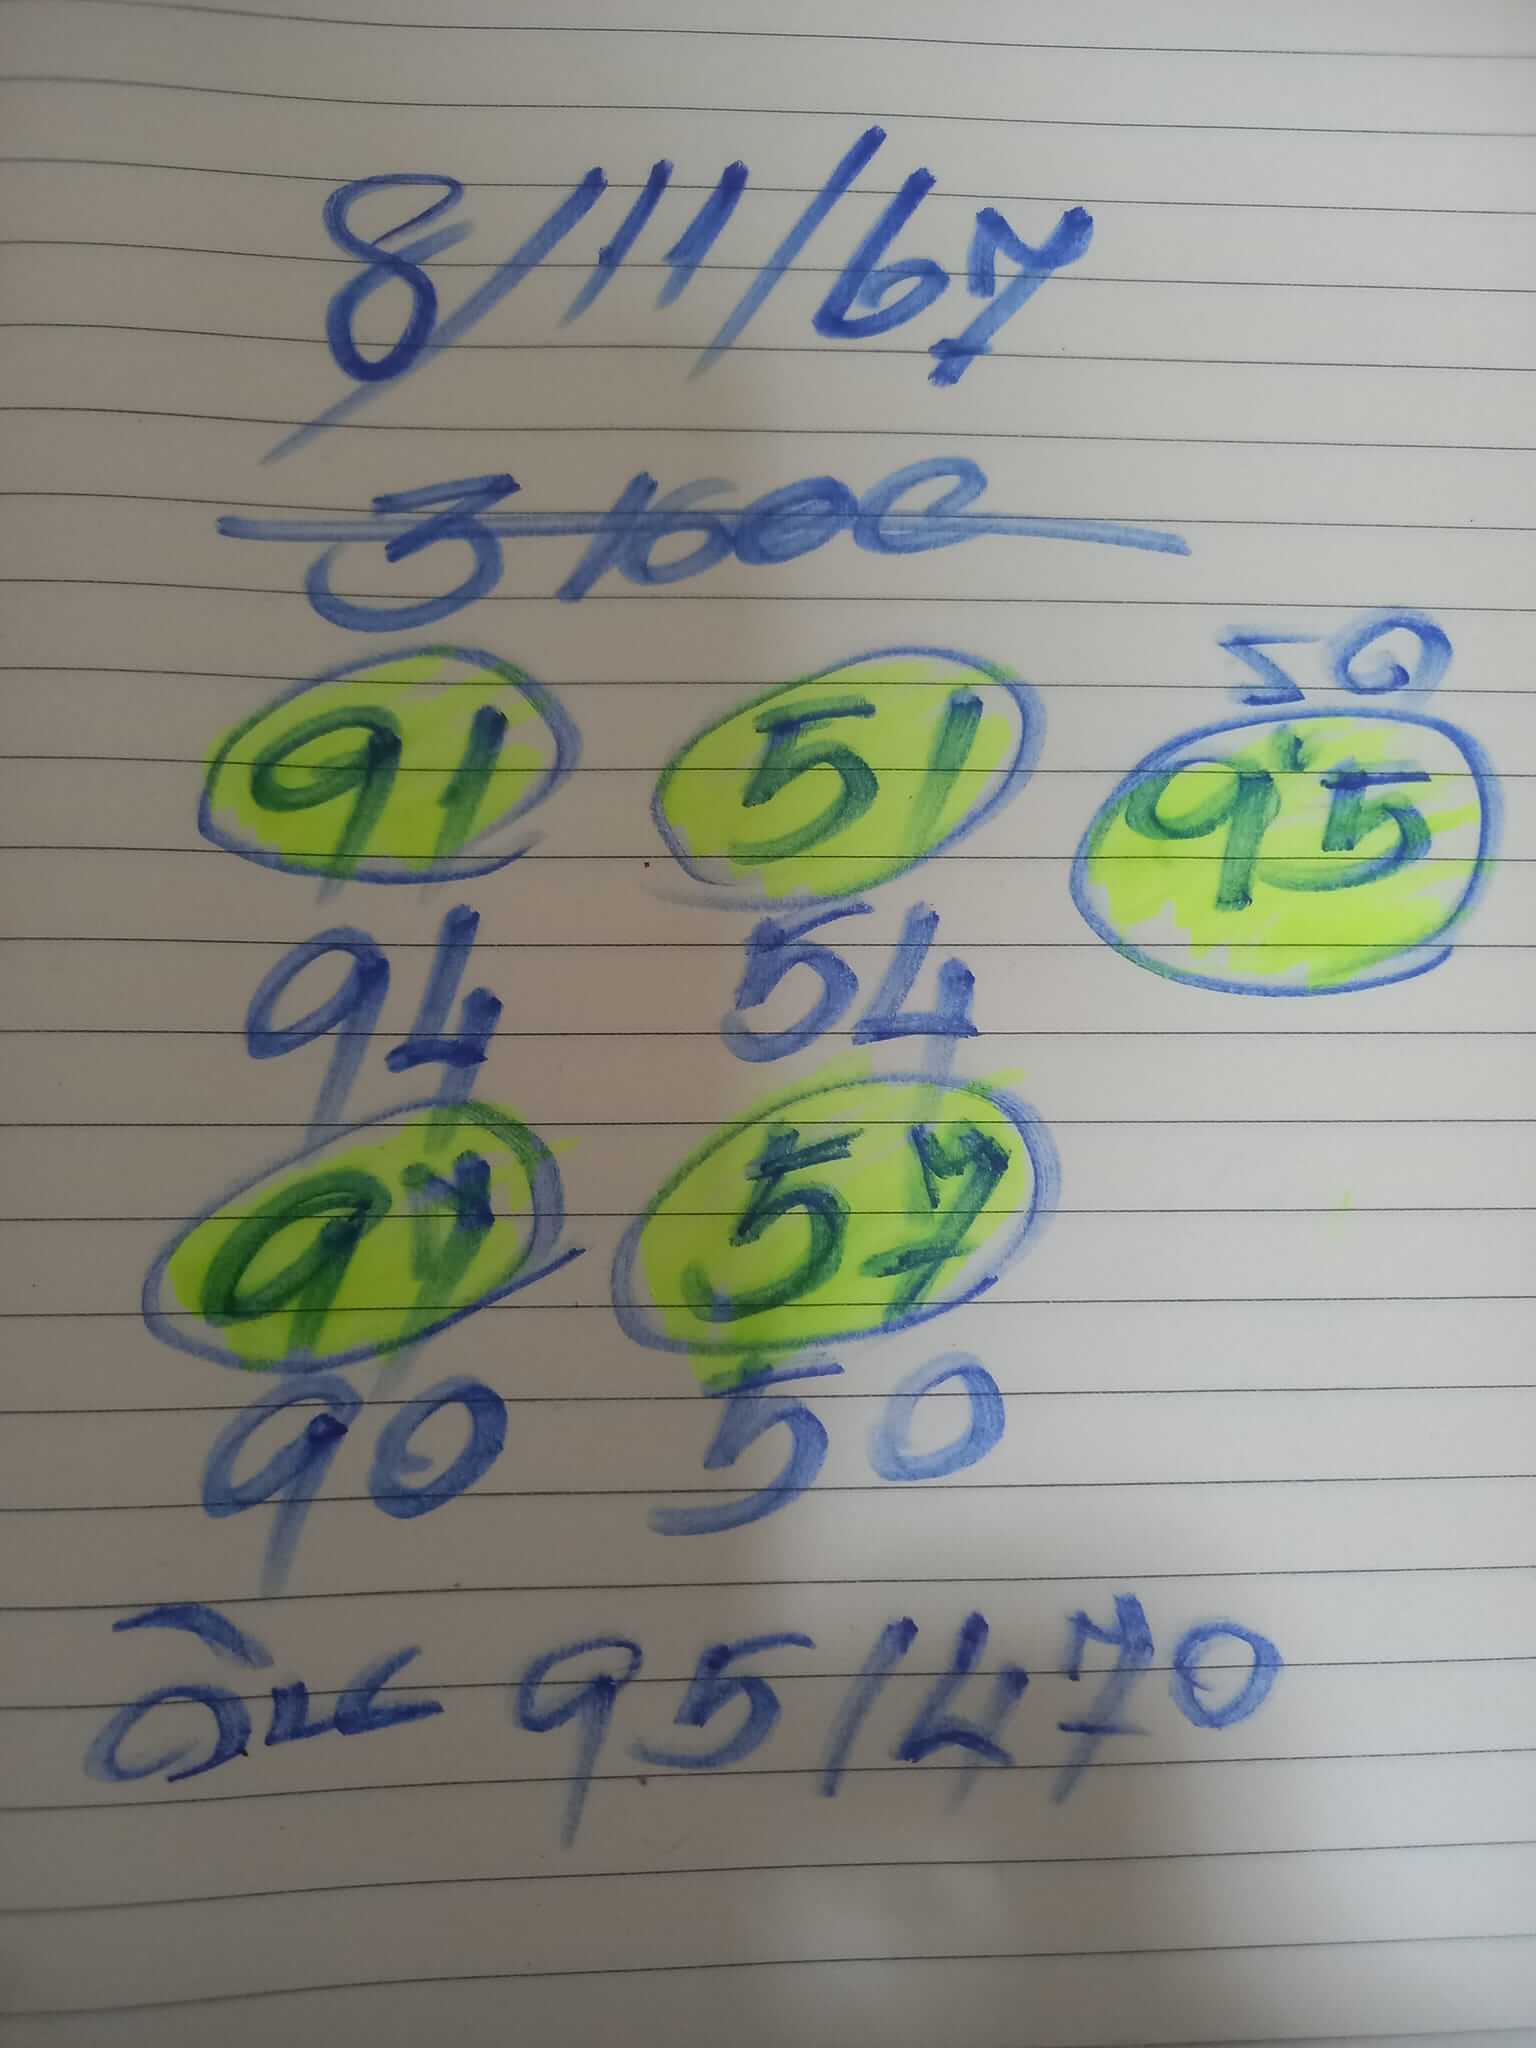 8/11/67
91 51
95
94 54
97 57
90 50
95 1470